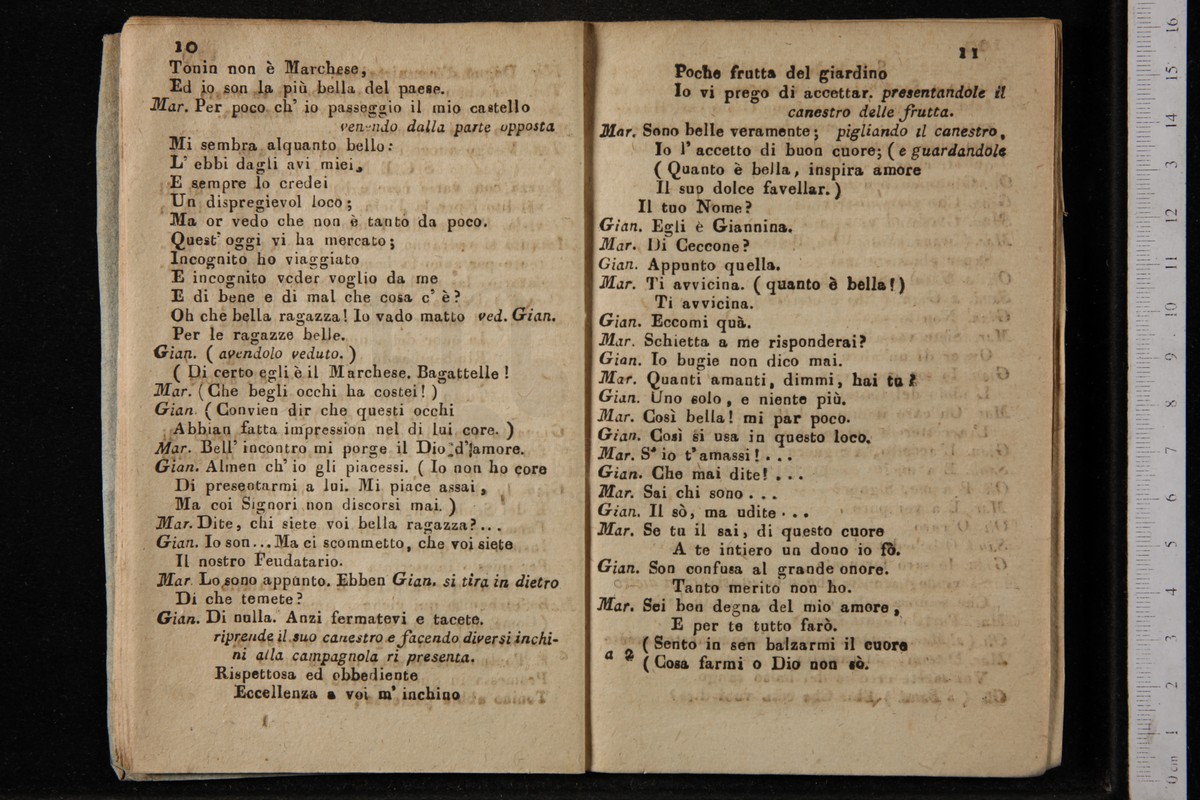 10
Tonin non è Marchese,
Ed io son la più bella del paese.
Mar. Per poco ch' io passeggio il mio castello
venendo dalla parte opposta
Mi sembra alquanto bello:
L' ebbi dagli avi miei,
E sempre lo credei
Un dispregievol loco;
Ma or vedo che non è tanto da poco.
Quest' oggi vi ha mercato;
Incognito ho viaggiato
E incognito veder voglio da me
E di bene e di mal che cosa c' è?
Oh che bella ragazza! Io vado matto ved. Gian.
Per le ragazze belle.
Gian. ( avendolo veduto. )
( Di certo egli è il Marchese. Bagattelle !
Mar. ( Che begli occhi ha costei! )
Gian. ( Convien dir che questi occhi
Abbian fatta impression nel di lui core. )
Mar. Bell' incontro mi porge il Dio d'amore.
Gian. Almen ch' io gli piacessi. ( Io non ho core
Di presentarmi a lui. Mi piace assai,
Ma coi Signori non discorsi mai. )
Mar. Dite, chi siete voi bella ragazza?...
Gian. Io son... Ma ci scommetto, che voi siete
Il nostro Feudatario.
Mar. Lo sono appunto. Ebben Gian. si tira in dietro
Di che temete?
Gian. Di nulla. Anzi fermatevi e tacete.
riprende il suo canestro e facendo diversi inchi-
ni alla campagnola ri presenta.
Rispettosa ed obbediente
Eccellenza a voi m' inchino
11
Poche frutta del giardino
Io vi prego di accettar. presentandole il
canestro delle frutta.
Mar. Sono belle veramente; pigliando il canestro,
Io l' accetto di buon cuore; ( e guardandole
( Quanto è bella, inspira amore
Il suo dolce favellar. )
Il tuo Nome?
Gian. Egli è Giannina.
Mar. Di Ceccone?
Gian. Appunto quella.
Mar. Ti avvicina. ( quanto è bella! )
Ti avvicina.
Gian. Eccomi quà.
Mar. Schietta a me risponderai?
Gian. Io bugie non dico mai.
Mar. Quanti amanti, dimmi, hai tu?
Gian. Uno solo, e niente più.
Mar. Così bella! mi par poco.
Gian. Così si usa in questo loco.
Mar. S' io t' amassi! . . .
Gian. Che mai dite! . . .
Mar. Sai chi sono . . .
Gian. Il sò, ma udite . . .
Mar. Se tu il sai, di questo cuore
A te intiero un dono io fò.
Gian. Son confusa al grande onore.
Tanto merito non ho.
Mar. Sei ben degna del mio amore,
E per te tutto farò.
a 2 ( Sento in sen balzarmi il cuore
( Cosa farmi o Dio non sò.
0 cm 1 2 3 4 5 6 7 8 9 10 11 12 13 14 15 16